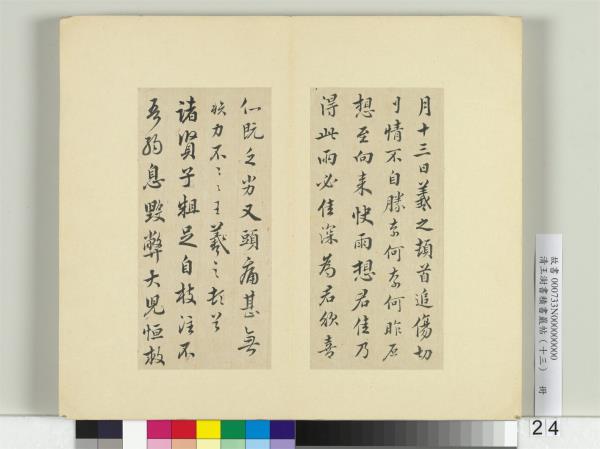 月十三日羲之頓首追傷切
情不自勝奈何奈何昨
想至向来快雨想君佳乃
得此雨必佳深為君欣喜
仁既乏劣又頭痛甚無
力不〻王羲之頓首
諸賢子粗足自枝注不
吾為息毀弊大兒恒救
故書 000733N000000000
清王澍書積書巖帖(十三) 冊
24